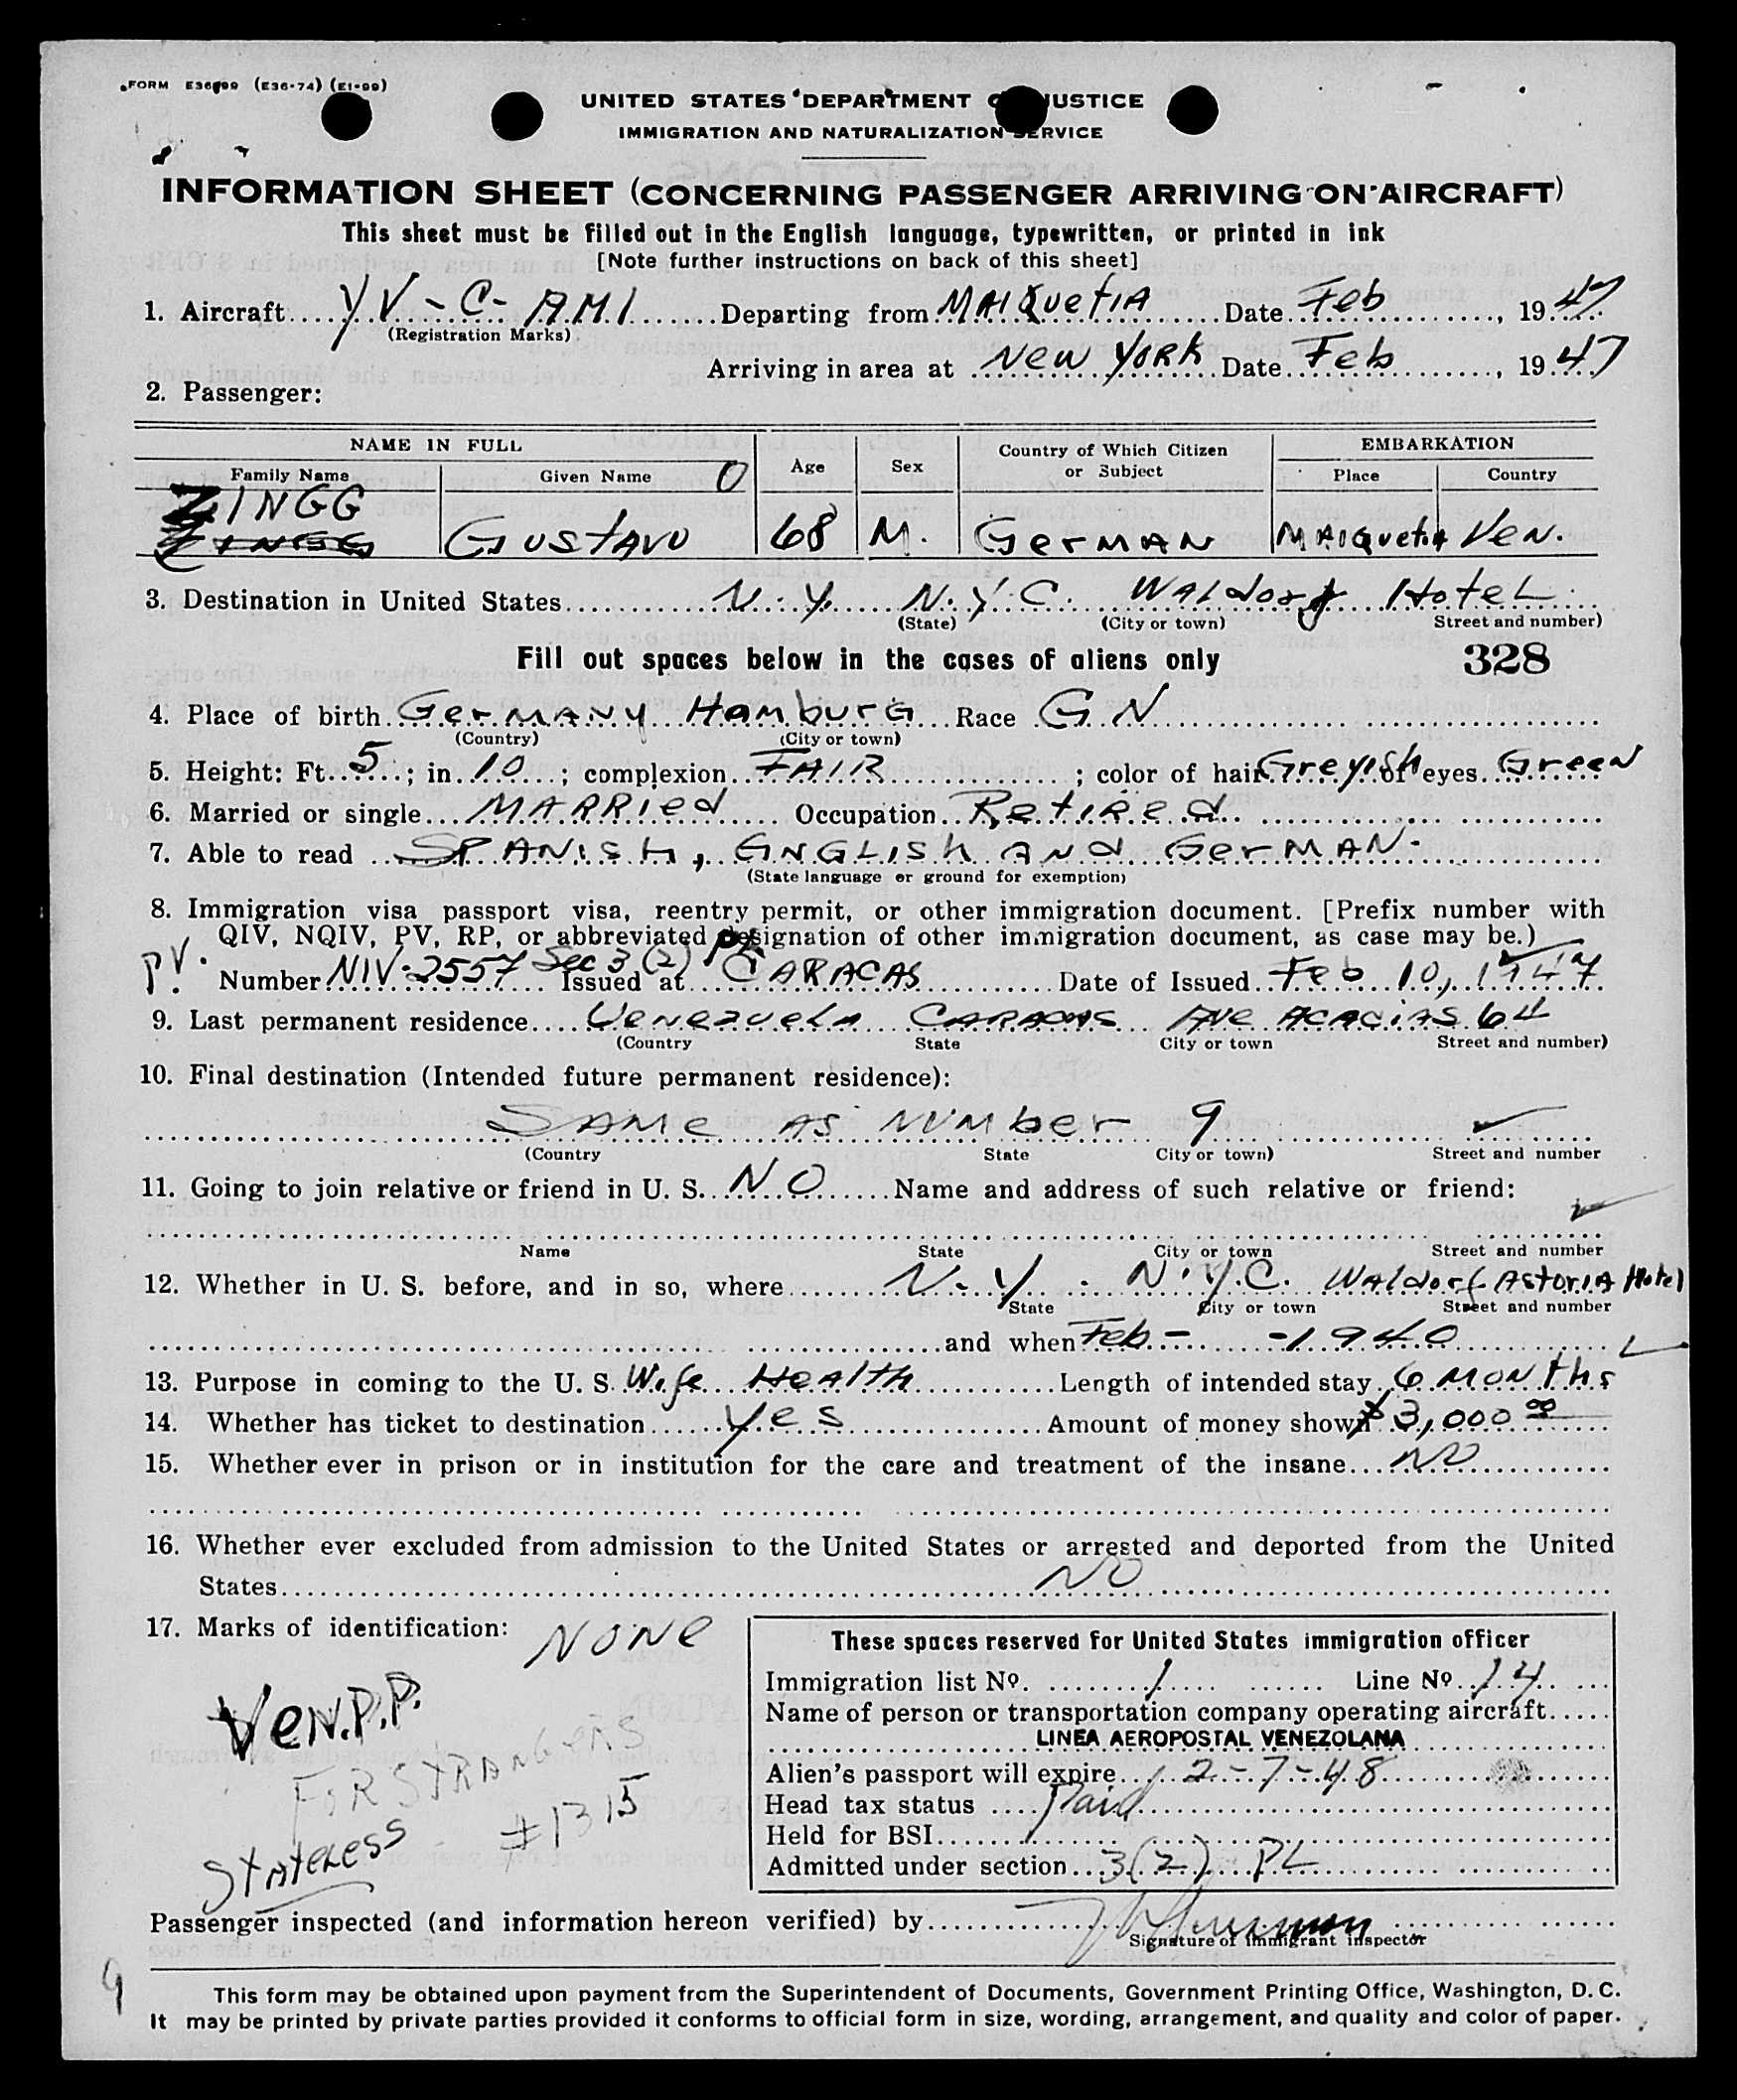 FORM E36-99 (E36-74) (E1-99)
UNITED STATES DEPARTMENT OF JUSTICE
IMMIGRATION AND NATURALIZATION SERVICE
INFORMATION SHEET (CONCERNING PASSENGER ARRIVING ON AIRCRAFT)
This sheet must be filled out in the English language, typewritten, or printed in ink
[Note further instructions on back of this sheet]
1. Aircraft YV-C-AMI Departing from MAIQUETIA Date Feb, 1947
(Registration Marks)
Arriving in area at NEW YORK Date Feb, 1947
2. Passenger:
NAME IN FULL Age Sex Country of Which Citizen or Subject EMBARKATION
Family Name Given Name O Place Country
ZINGG
ZINGG GUSTAVO 68 M. GERMAN MAIQUETIA VEN.
3. Destination in United States N.Y. N.Y.C. WALDORF HOTEL
(State) (City or town) Street and number)
Fill out spaces below in the cases of aliens only 328
4. Place of birth GERMANY HAMBURG Race GN
(Country) (City or town)
5. Height: Ft. 5; in. 10; complexion FAIR; color of hair Greyish of eyes Green
6. Married or single MARRIED Occupation RETIRED
7. Able to read SPANISH, ENGLISH AND GERMAN.
(State language or ground for exemption)
8. Immigration visa passport visa, reentry permit, or other immigration document. [Prefix number with
QIV, NQIV, PV, RP, or abbreviated designation of other immigration document, as case may be.)
PV. Number NIV-2557 Sec 3 (2) PL Issued at CARACAS Date of Issued Feb 10, 1947
9. Last permanent residence VENEZUELA CARACAS AVE ACACIAS 64
(Country State City or town Street and number)
10. Final destination (Intended future permanent residence):
SAME AS NUMBER 9
(Country State City or town) Street and number
11. Going to join relative or friend in U. S. NO Name and address of such relative or friend:
Name State City or town Street and number
12. Whether in U. S. before, and in so, where N-Y. N.Y.C. WALDORF ASTORIA Hotel
State City or town Street and number
and when Feb - - 1940
13. Purpose in coming to the U. S. Wife HEALTH Length of intended stay 6 MONThs
14. Whether has ticket to destination Yes Amount of money shown $3,000 00
15. Whether ever in prison or in institution for the care and treatment of the insane NO
16. Whether ever excluded from admission to the United States or arrested and deported from the United
States NO
17. Marks of identification: NONE
VEN.P.P.
FOR STRANGERS
#1315
STATELESS
These spaces reserved for United States immigration officer
Immigration list No. 1 Line No. 14
Name of person or transportation company operating aircraft
LINEA AEROPOSTAL VENEZOLANA
Alien's passport will expire 12-7-48
Head tax status Paid
Held for BSI
Admitted under section 3(2) PL
Passenger inspected (and information hereon verified) by
Signature of immigrant inspector
9
This form may be obtained upon payment from the Superintendent of Documents, Government Printing Office, Washington, D. C.
It may be printed by private parties provided it conforms to official form in size, wording, arrangement, and quality and color of paper.